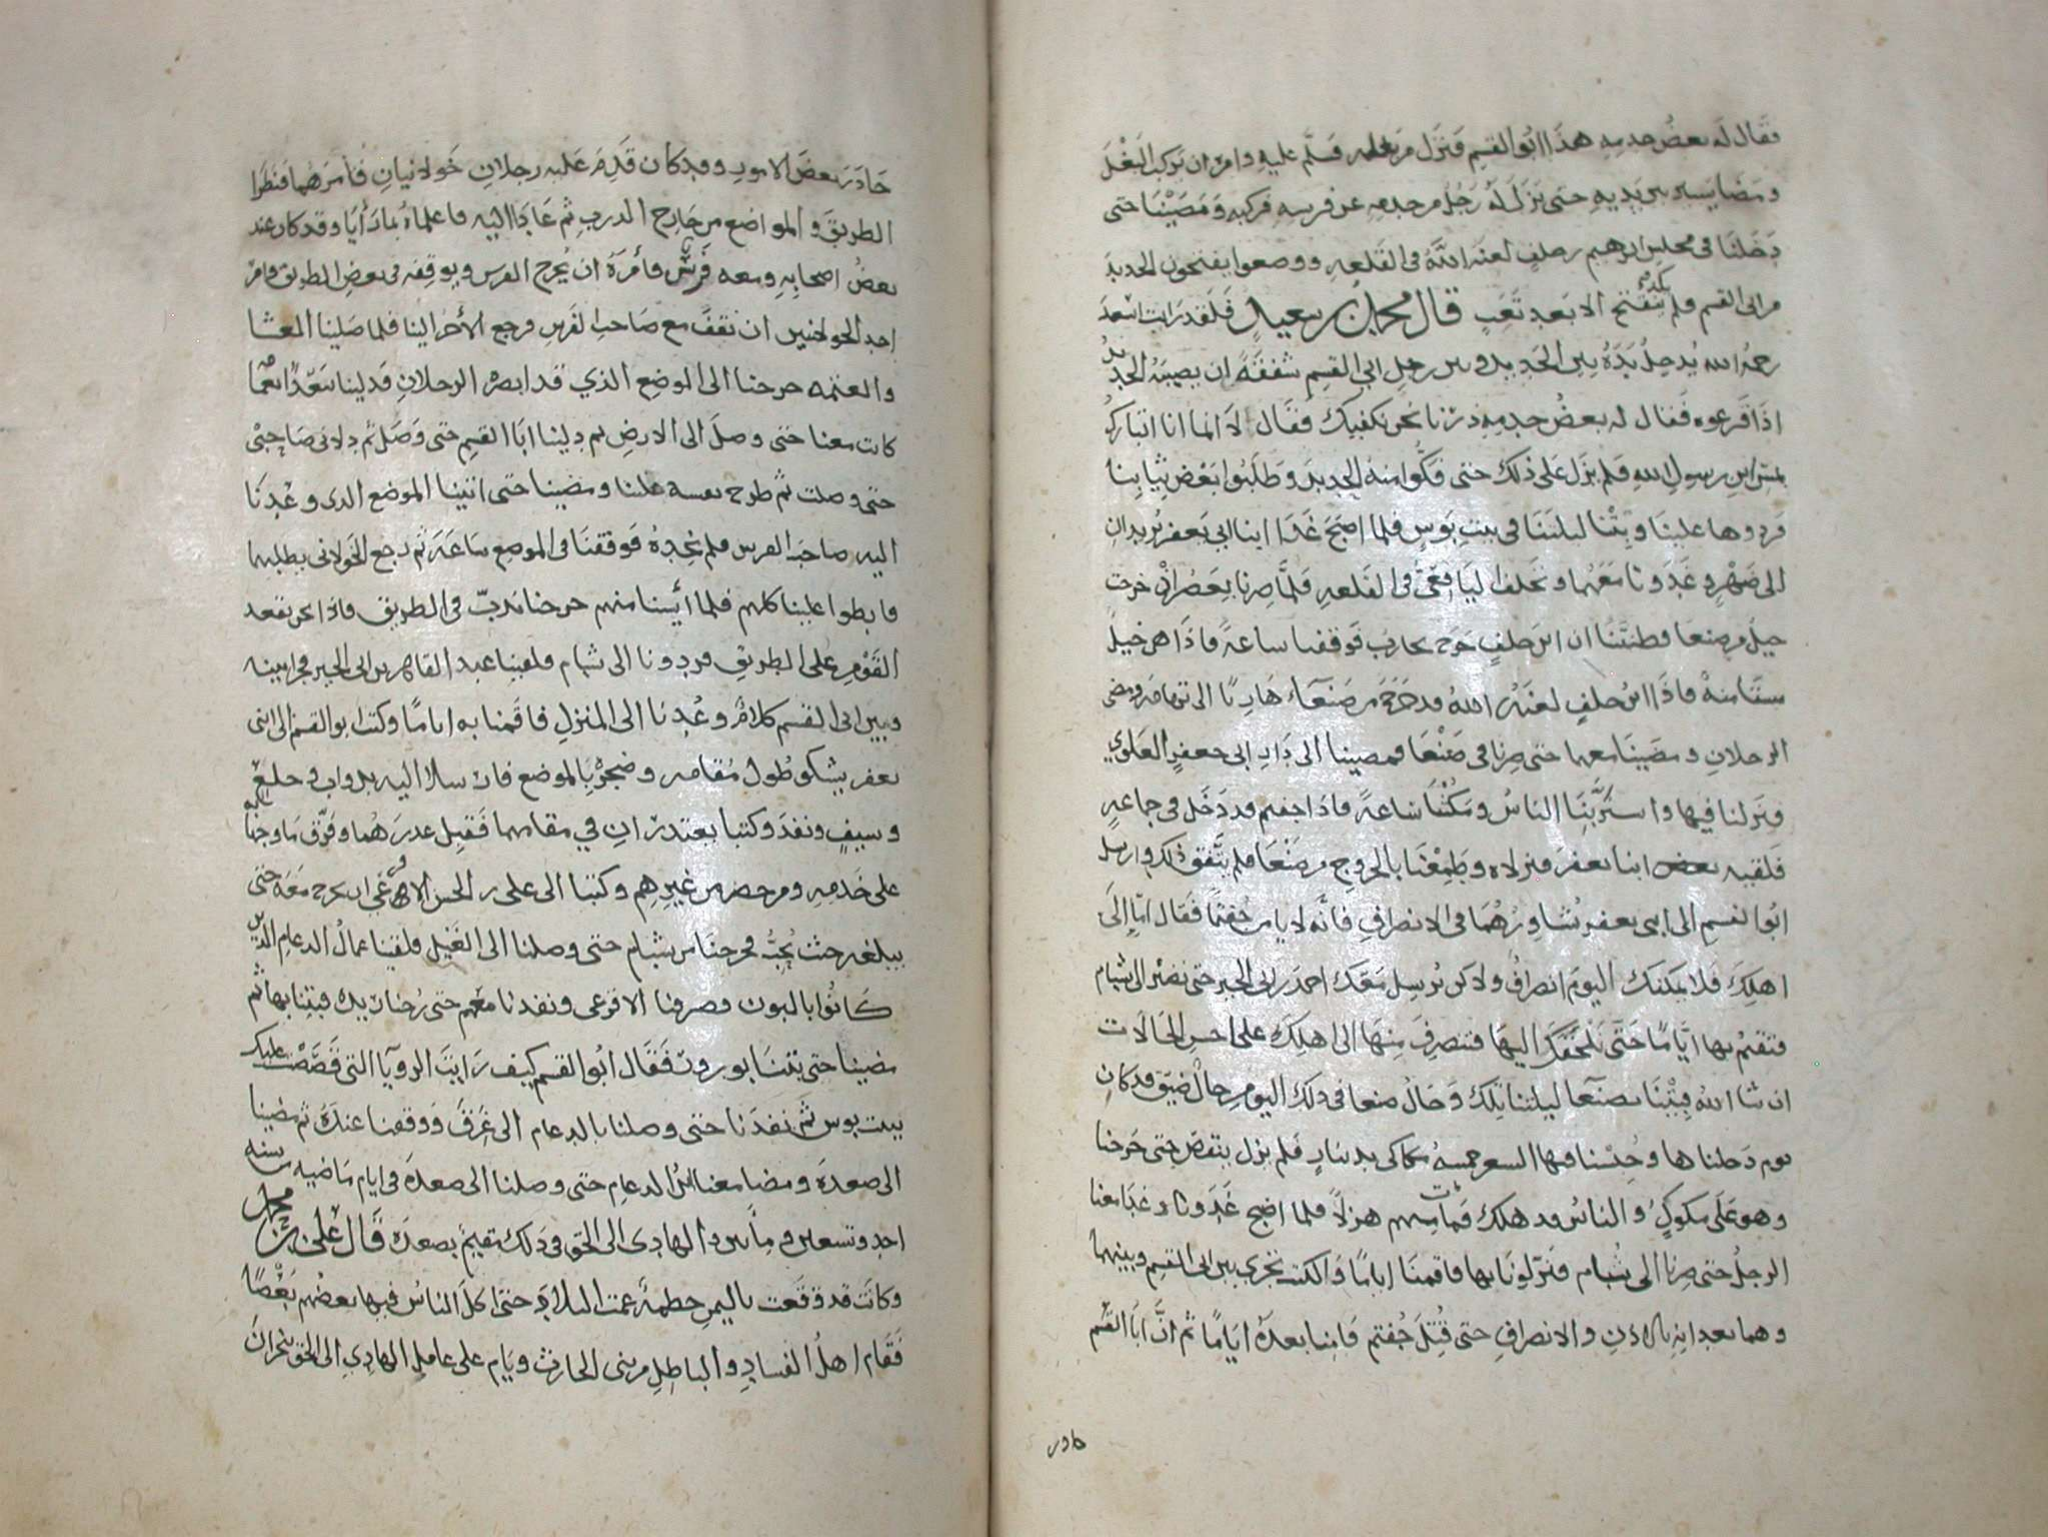 فقال له بعض خدمه هذا ابو القسم فنزل من بغله فسلم عليه وامره ان يركب البغل
ومضا يسير بين يديه حتى نزل له رجل من خدمه عن فرسه فركبه ومضينا حتى
دخلنا في مجلس ابرهيم بن خلف لعنه الله في القلعه ووضعوا يفتحون الحديد
من ابي القسم فلم تنفتح الا بعد تعب قال محمد بن سعيد فلقد رايت اسعد
رحمه الله يدخل يده بين الحديد وبين رجل ابي القسم شفقة ان يصيبه الحديد
اذا قرعوه فقال له بعض خدمه ذرنا نحن نكفيك فقال لا انما انا اتبارك
بمس ابن رسول الله فلم يزل على ذلك حتى فكوا منه الحديد وطلبوا بعض ثيابنا
فردوها علينا وبتنا ليلتنا في بيت بوس فلما اصبح غدا ابنا ابي يعفر يريدان
الى ضهر وغدونا معهما ونخلف في القلعه فلما صرنا بعصران خرجت
خيل من صنعا فظننا ان ابن خلف خرج يحارب فوقفنا ساعة فاذا هي خيل
فاذا ابن خلف لعنه الله قد خرج من صنعآء هاربا الى تهامه ومضى
الرجلان ومضينا معهما حتى صرنا في صنعا فمضينا الى دار ابي جعفر العلوي
فنزلنا فيها واستربنا الناس ومكثنا ساعة فاذا جفتم قد دخل في جماعه
فلقيه بعض ابنا يعفر فنزلاه وطمعنا بالخروج من صنعا فلم يتفق ذلك وارسل
ابو القسم الى ابنى يعفر يشاورهما في الانصراف فانه لا يامن جفتما فقال اما الى
اهلك فلا يمكنك اليوم انصراف ولاكن نرسل معك احمد بن ابي الخير حتى تصير الى شبام
فتقيم بها اياما حتى نلحقك اليها فتنصرف منها الى اهلك على احسن الحالات
ان شا الله فبتنا بصنعآ ليلتنا تلك وحال صنعا في ذلك اليوم حال ضيق قد كان
يوم دخلناها وحبسنا فيها السعر خمسه مكاكى بدينار فلم يزل ينقص حتى خرجنا
وهو على مكوك والناس قد هلك من هزلا فلما اصبح غدونا وغدا معنا
الرجل حتى صرنا الى شبام فنزلونا بها فاقمنا اياما والكتب تجري بين ابي القسم وبينهما
وهما يعدانه بالاذن والانصراف حتى قتل جفتم فاقمنا بعده اياما ثم ان ابا القسم
حاذر
حاذر بعض الامور وقد كان قدم عليه رجلان خولانيان فامرهما فنظرا
الطريق والمواضع من خارج الدرب ثم عادا اليه فاعلماه بما رأيا وقد كان عند
بعض اصحابه ومعه فرس فأمره ان يخرج الفرس ويوقفه في بعض الطريق وامر
احد الخولانيين ان تقف مع صاحب الفرس ورجع الأخر الينا فلما صلينا المغشا
والعتمه خرجنا الى الموضع الذي قد ابصر الرجلان فدلينا
كانت معنا حتى وصل الى الارض ثم دلينا ابا القسم حتى وصل ثم دلانى صاحبى
حتى وصلت ثم طرح نفسه علينا ومضينا حتى اتينا الموضع الذى وعدنا
اليه صاحب الفرس فلم نجده فوقفنا في الموضع ساعة ثم رجع الخولانى يطلبهما
فابطوا علينا كلهم فلما أيسنا منهم خرجنا ندب في الطريق فاذا نحن نقعد
القوم على الطريق فردونا الى شبام فلقينا عبد القاهر بن ابي الخير فجرا بينه
وبين ابي القسم كلام وعدنا الى المنزل فاقمنا به اياما وكتب ابو القسم الى ابنى
يعفر يشكو طول مقامه وضجره بالموضع فارسلا اليه بدواب وخلع
وسيف ونفد وكتبا يعتذران في مقامهما فقبل عذرهما وفرق ما وجها به
على خدمه ومن حضر من غيرهم وكتبا الى على بن الحسن الاقرعى ان يخرج معه حتى
يبلغه حيث يحب فخرجنا من شبام حتى وصلنا الى الغيل فلقينا عمال الدعام الذين
كانوا بالبون فصرفنا الاقرعى ونفدنا معهم حتى رحنا ريده فبتنا بها ثم
مضينا حتى بتنا بورور فقال ابو القسم كيف رايت الرويا التى قصصت عليك
ببيت بوس ثم نفدنا حتى وصلنا بالدعام الى غرق ووقفنا عنده ثم مضينا
الى صعدة ومضا معنا ابن الدعام حتى وصلنا الى صعدة في ايام ماضيه سنه
احد وتسعين ومأتين والهادى الى الحق في ذلك مقيم بصعدة قال على بن محمد
وكانت قد وقعت باليمن حطمة عمت البلاد حتى اكل الناس فيها بعضهم بعضا
فقام اهل الفساد والباطل من بنى الحارث ويام على عامل الهادي الى الحق بنجران